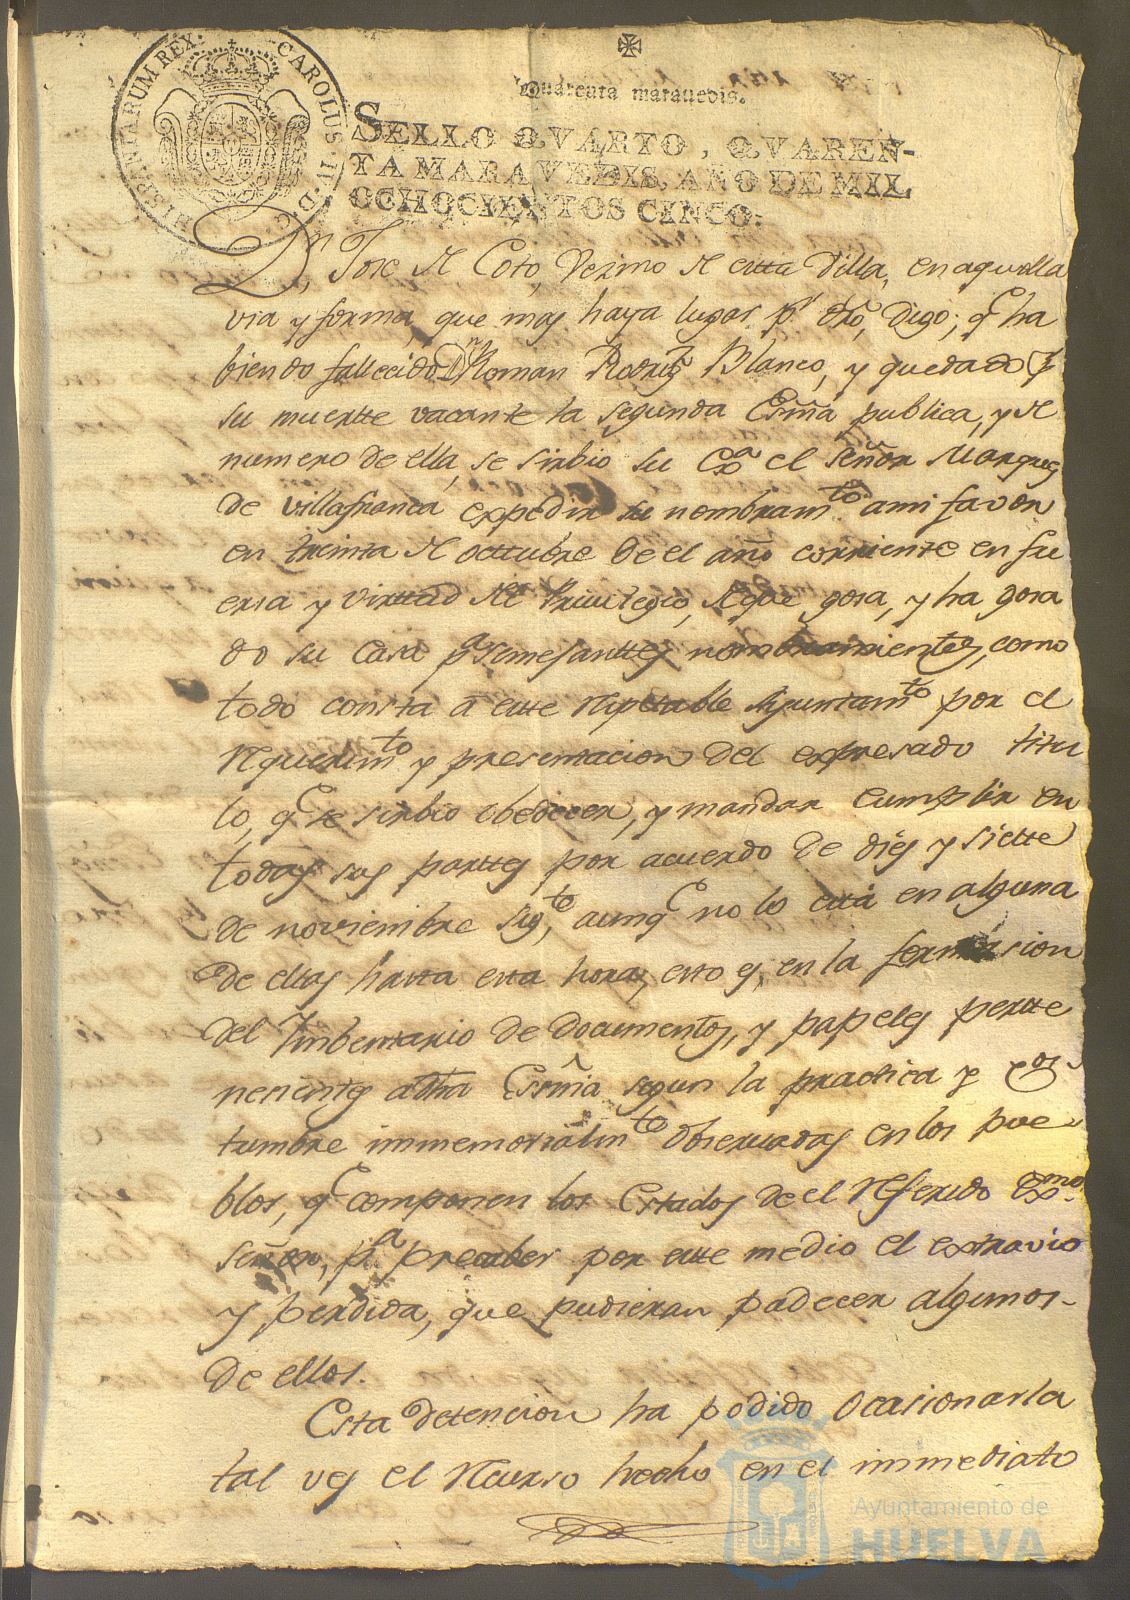 HISPANIARUM REX. CAROLUS·IV·D·G·
Quarenta maravedis.
SELLO QVARTO, QVAREN-
TA MARAVEDIS, AÑO DE MIL
OCHOCIENTOS CINCO.
Dn. Jose de Coto, Vezino de esta Villa, en aquella
via y forma, que mas haya lugar pr. dro, Digo; qe ha
biendo fallecido Dn Roman Rodrigz Blanco, y quedado p
su muertte vacante la segunda Esnía publica, y de
numero de ella, se sirbio su Exa el señor Marques
de Villafranca expedir su nombramto. a mi favor
en treinta de octtubre de el año corriente en fu
ersa y virttud del Privilegio, de que gosa, y ha gosa
do su casa pa semejanttes nombramientos, como
todo consta a este respetable Ayuntamto por el
requerimto y presentacion del expresado titu
lo, qe se sirbio obedecer, y mandar cumplir en
todas sus parttes por acuerdo de dies y siette
de noviembre sigte, aunqe no lo está en alguna
de ellas hasta esta hora, esto es, en la formasion
del Imbentario de documentos, y papeles pertte
necientes a dha Esnía segun la practica y cos-
tumbre immemorialmte observadas en los pue-
blos, qe componen los Estados de el referido Exmo.
señor, pa precaber por este medio el extravio
y perdida, que pudieran padecer algunos-
de ellos.
Esta detencion ha podido ocasionarla
tal ves el recurso hecho en el immediato
Ayuntamiento de
HUELVA